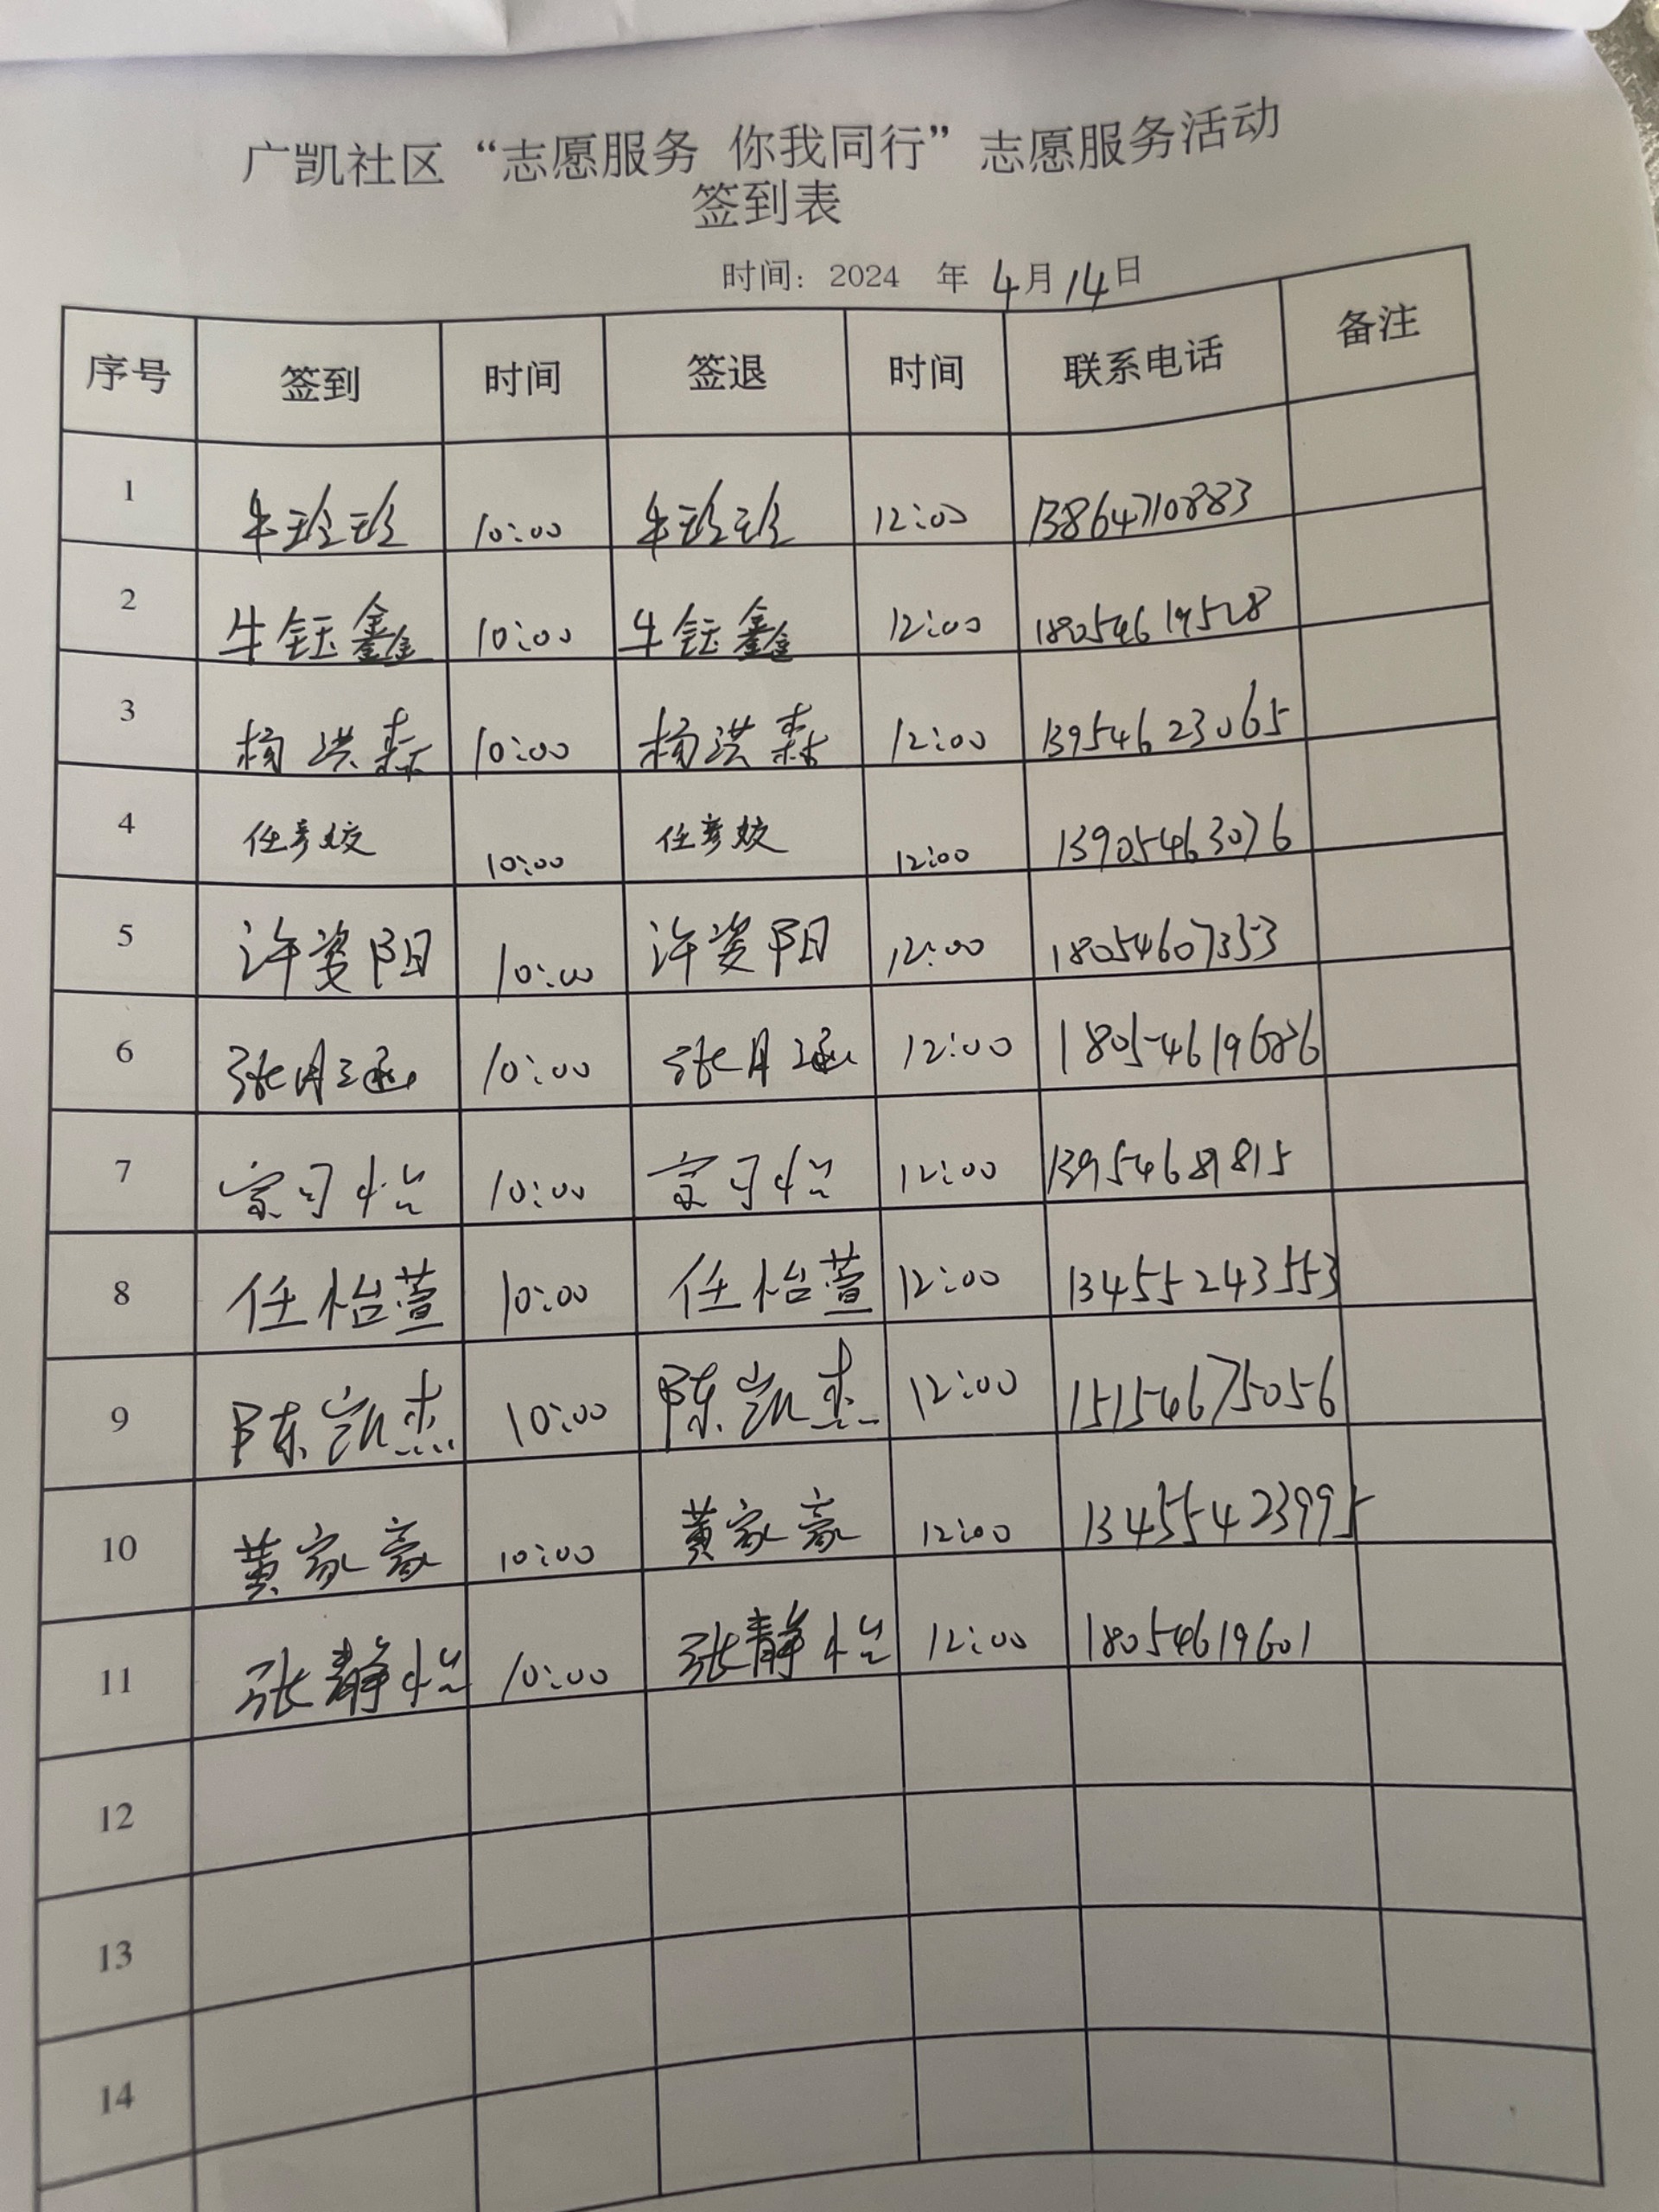 广凯社区“志愿服务 你我同行”志愿服务活动
签到表
时间：2024 年 4月14日
序号 签到 时间 签退 时间 联系电话 备注
1 牛玲玲 10:00 牛玲玲 12:00 13864710883
2 牛钰鑫 10:00 牛钰鑫 12:00 18054619528
3 杨洪森 10:00 杨洪森 12:00 13954623065
4 任彦姣 10:00 任彦姣 12:00 13905463076
5 许姿阳 10:00 许姿阳 12:00 18054607353
6 张月涵 10:00 张月涵 12:00
7 10:00 12:00
8 任怡萱 10:00 任怡萱 12:00 13455243553
9 陈凯杰 10:00 陈凯杰 12:00 15154675056
10 黄家豪 10:00 黄家豪 12:00 13455423995
11 张静怡 10:00 张静怡 12:00 18054619601
12
13
14